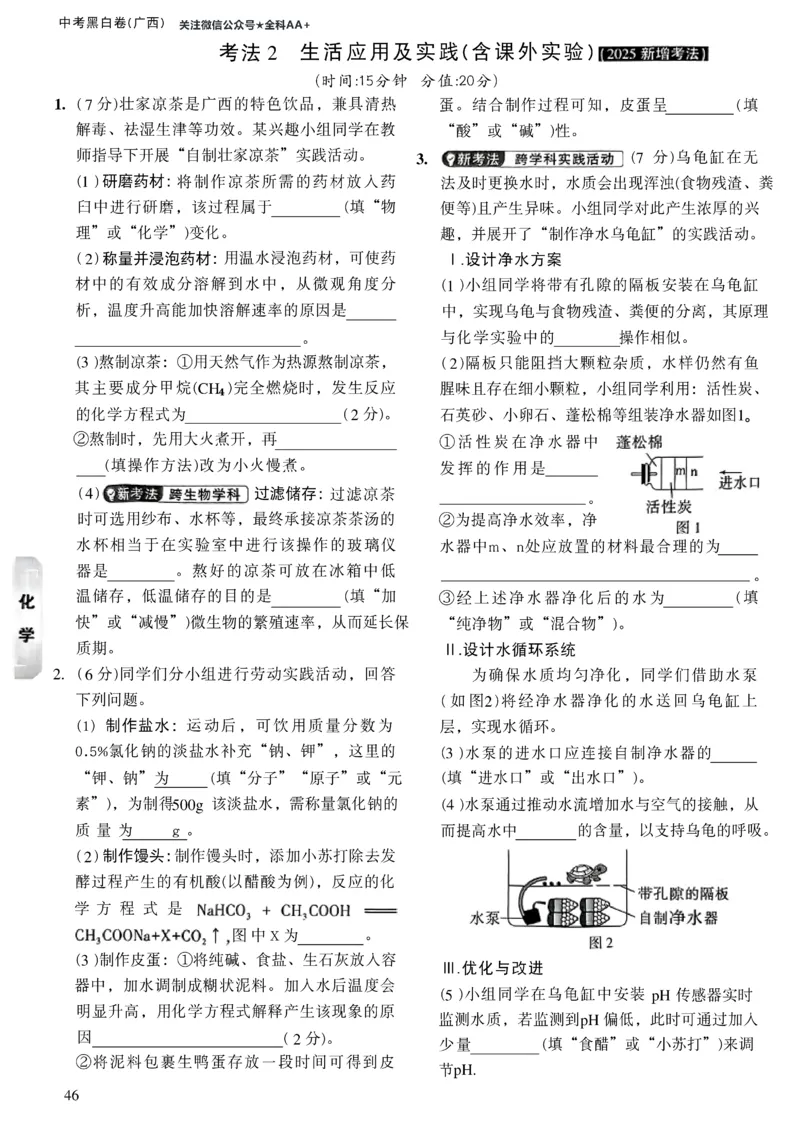 中考黑白卷(广西) 关注微信公众号★全科AA+
考法2 生活应用及实践(含课外实验)【2025新增考法】
(时间:15分钟 分值:20分)
1. (7分)壮家凉茶是广西的特色饮品，兼具清热
解毒、祛湿生津等功效。某兴趣小组同学在教
师指导下开展“自制壮家凉茶”实践活动。
(1)研磨药材：将制作凉茶所需的药材放入药
臼中进行研磨，该过程属于________(填“物
理”或“化学”)变化。
(2)称量并浸泡药材：用温水浸泡药材，可使药
材中的有效成分溶解到水中，从微观角度分
析，温度升高能加快溶解速率的原因是______
__________________________。
(3)熬制凉茶：①用天然气作为热源熬制凉茶，
其主要成分甲烷(CH₄)完全燃烧时，发生反应
的化学方程式为__________________(2分)。
②熬制时，先用大火煮开，再______________
____(填操作方法)改为小火慢煮。
(4)新考法 跨生物学科 过滤储存：过滤凉茶
时可选用纱布、水杯等，最终承接凉茶茶汤的
水杯相当于在实验室中进行该操作的玻璃仪
器是________。熬好的凉茶可放在冰箱中低
温储存，低温储存的目的是________(填“加
快”或“减慢”)微生物的繁殖速率，从而延长保
质期。
2. (6分)同学们分小组进行劳动实践活动，回答
下列问题。
(1) 制作盐水：运动后，可饮用质量分数为
0.5%氯化钠的淡盐水补充“钠、钾”，这里的
“钾、钠”为______(填“分子”“原子”或“元
素”)，为制得500g 该淡盐水，需称量氯化钠的
质量为______g。
(2)制作馒头：制作馒头时，添加小苏打除去发
酵过程产生的有机酸(以醋酸为例)，反应的化
学方程式是 NaHCO₃ + CH₃COOH ══
CH₃COONa+X+CO₂↑,图中X为________。
(3)制作皮蛋：①将纯碱、食盐、生石灰放入容
器中，加水调制成糊状泥料。加入水后温度会
明显升高，用化学方程式解释产生该现象的原
因______________________(2分)。
②将泥料包裹生鸭蛋存放一段时间可得到皮
蛋。结合制作过程可知，皮蛋呈________(填
“酸”或“碱”)性。
3. 新考法 跨学科实践活动 (7分)乌龟缸在无
法及时更换水时，水质会出现浑浊(食物残渣、粪
便等)且产生异味。小组同学对此产生浓厚的兴
趣，并展开了“制作净水乌龟缸”的实践活动。
Ⅰ.设计净水方案
(1)小组同学将带有孔隙的隔板安装在乌龟缸
中，实现乌龟与食物残渣、粪便的分离，其原理
与化学实验中的________操作相似。
(2)隔板只能阻挡大颗粒杂质，水样仍然有鱼
腥味且存在细小颗粒，小组同学利用：活性炭、
石英砂、小卵石、蓬松棉等组装净水器如图1。
①活性炭在净水器中
发挥的作用是______
__________________。
蓬松棉
m n
进水口
活性炭
图1
②为提高净水效率，净
水器中m、n处应放置的材料最合理的为_____
____________________________________。
③经上述净水器净化后的水为________(填
“纯净物”或“混合物”)。
Ⅱ.设计水循环系统
为确保水质均匀净化，同学们借助水泵
(如图2)将经净水器净化的水送回乌龟缸上
层，实现水循环。
(3)水泵的进水口应连接自制净水器的______
(填“进水口”或“出水口”)。
(4)水泵通过推动水流增加水与空气的接触，从
而提高水中________的含量，以支持乌龟的呼吸。
带孔隙的隔板
水泵
自制净水器
图2
Ⅲ.优化与改进
(5)小组同学在乌龟缸中安装 pH 传感器实时
监测水质，若监测到pH 偏低，此时可通过加入
少量________(填“食醋”或“小苏打”)来调
节pH.
化
学
46